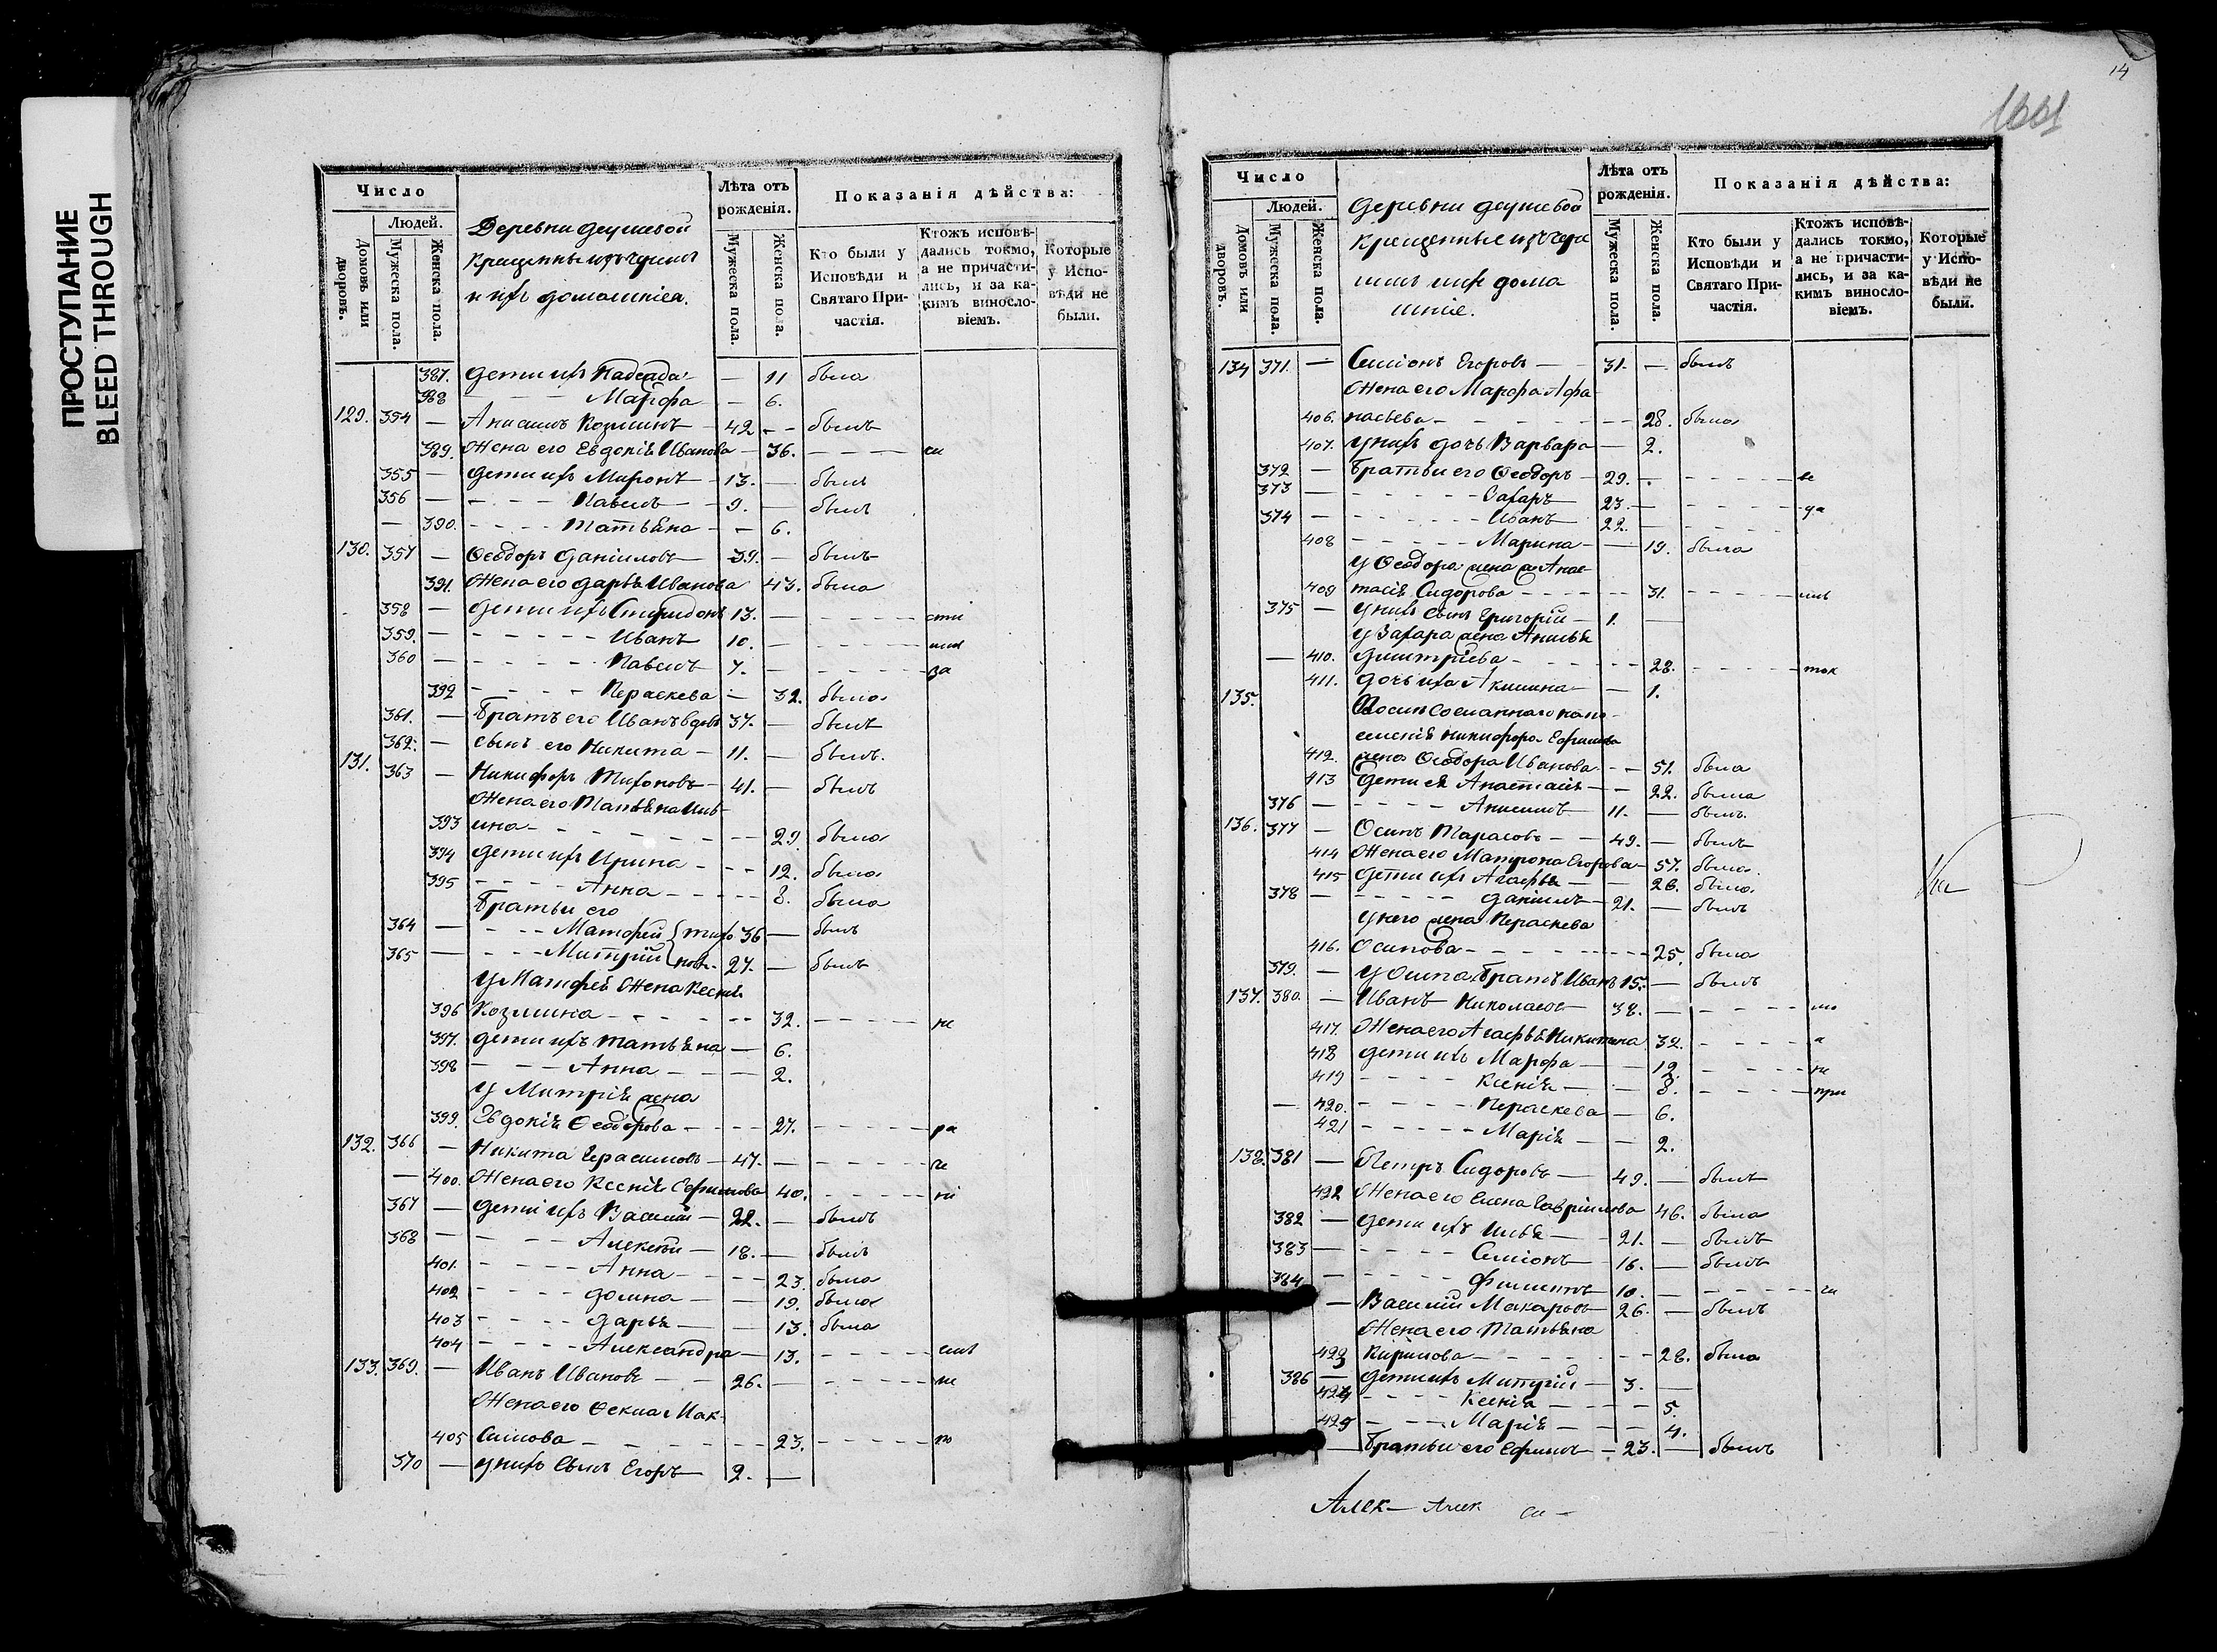 ПРОСТУПАНИЕ
BLEED THROUGH
Число
Людей.
Домовъ или дворовъ.
Мужеска пола.
Женска пола.
Деревни
и ихъ домашнiея.
Лѣта отъ рожденія.
Мужеска пола.
Женска пола.
Показанія дѣйства:
Кто были у Исповѣди и Святаго Причастія.
Ктожъ исповѣдались токмо, а не причастились, и за какимъ винословіемъ.
Которые у Исповѣди не были.
387. Дети ихъ Надежда — 11 была
388 — — — Марфа — 6.
129. 354 — Анисимъ Козминъ — 42 — былъ
389. Жена его Евдокiя Иванова — 36. — — — — си
355 — Дети ихъ Миронъ — 13. — былъ
356 — — — — Павелъ — 9. — былъ
— 390. — — — — Татьяна — — 6.
130. 357 — Ѳеодоръ Данiиловъ — 39. — былъ
391. Жена его Дарья Иванова 43. была
358 — Дети ихъ Спиридонъ 13. — — — —
359. — — — — — Иванъ 10. — — — —
360 — — — — — Павелъ 7. — — — — за
392 — — — — Пераскева — 32. была
361. — Братъ его Иванъ вдовъ 37. — былъ
362. — сынъ его Никита — 11. — былъ.
131. 363 — Никифоръ Тихоновъ — 41. — былъ
Жена его Татьяна Иль-
393 ина — — — — — 29. была
394 Дети ихъ Ирина — — — 12. была
395 — — — — Анна — — — — 8. была
Братьи его
364 — — — Матфей } Тихо 36 — былъ
365 — — — Митрiй } новъ 27. — былъ
У Матфея Жена Ксенiя
396 Козмина — — — — — 32. — — — — не
397. Дети ихъ Татьяна — 6.
398 — — — Анна — — — 2.
У Митрiя жена
399. Евдокiя Ѳеодорова — — — — 27. — — — — ра
132. 366 — Никита Герасимовъ — 47. — — — — — че
— 400. Жена его Ксенiя Ефимова 40. — — — — нi
367 — Дети ихъ Василiй — 22. — былъ
368 — — — — Алексѣй — 18. — былъ
401. — — — — Анна — — — 23. была
402 — — — — Домна — — 19. была
403 — — — — Дарья — — 13. была
404 — — — — Александра — 13. — — — —
133. 369. — Иванъ Ивановъ — — 26. — — — — — не
Жена его Ѳекла Мак-
405 симова — — — — — — 23. — — — — по
370 — у нихъ сынъ Егоръ — 2. —
14
Число
Людей.
Домовъ или дворовъ.
Мужеска пола.
Женска пола.
Деревни
дома
шнiе.
Лѣта отъ рожденія.
Мужеска пола.
Женска пола.
Показанія дѣйства:
Кто были у Исповѣди и Святаго Причастія.
Ктожъ исповѣдались токмо, а не причастились, и за какимъ винословіемъ.
Которые у Исповѣди не были.
134 371. — Симiонъ Егоровъ — — 31. — былъ
Жена его Марфа Афа-
406. насьева — — — — — — 28. была
407. у нихъ дочь Варвара — 2.
372 — Братьи его Ѳеодоръ — 29. — — — — —
373 — — — — — — Захаръ — 23. — — — — — да
374 — — — — — — Иванъ — 22. — — — — —
408 — — — — — Марина — — 19. была
У Ѳеодора жена Анас-
409 тасiя Сидорова — — — — — 31. — — — —
375 — у нихъ сынъ Григорiй — 1. —
У Захара жена Анисья
— 410. Димитрiева — — — — — 28. — — — — ток
411. дочь ихъ Акилина — — 1.
135. Сосланнаго на по-
селенiе Никифора Ефимова
412. жена Ѳеодора Иванова — — 51. была
413 Дети ея Анастасiя — — 22. была
376 — — — — — Анисимъ — 11. — былъ.
136. 377 — Осипъ Тарасовъ — — 49. — былъ
414 Жена его Матрона Егорова — 57. была.
415 Дети ихъ Агафья — — 26. была.
378 — — — — — — Данiилъ — 21. — былъ
у него жена Пераскева
416. Осипова — — — — — — 25. была
379. — У Осипа братъ Иванъ 15. — былъ
137. 380. — Иванъ Николаевъ — 38. — — — —
417. Жена его Агафья Никитина 32. — — — — а
418 Дети ихъ Марфа — — 12. — — — — не
419 — — — — Ксенiя — — 8. — — — — при
— 420. — — — — Пераскева — 6.
421 — — — — — Марiя — — 2.
138. 381 — Петръ Сидоровъ — 49. — былъ
422 Жена его Елена Гаврiилова 46. была
382 — Дети ихъ Илья — — 21. — былъ
383 — — — — — Симiонъ — 16. — былъ
384 — — — — — Филиппъ — 10. — — — — — са
— Василiй Макаровъ — 26. — былъ
Жена его Татьяна
423 Кирилова — — — — — — 28. была
386 — Дети ихъ Митрiй — 3. —
424 — — — — Ксенiя — — — — 5.
425 — — — Марiя — — — 4.
— Братьи его Ефимъ — 23. — былъ
Алек — Алек си —